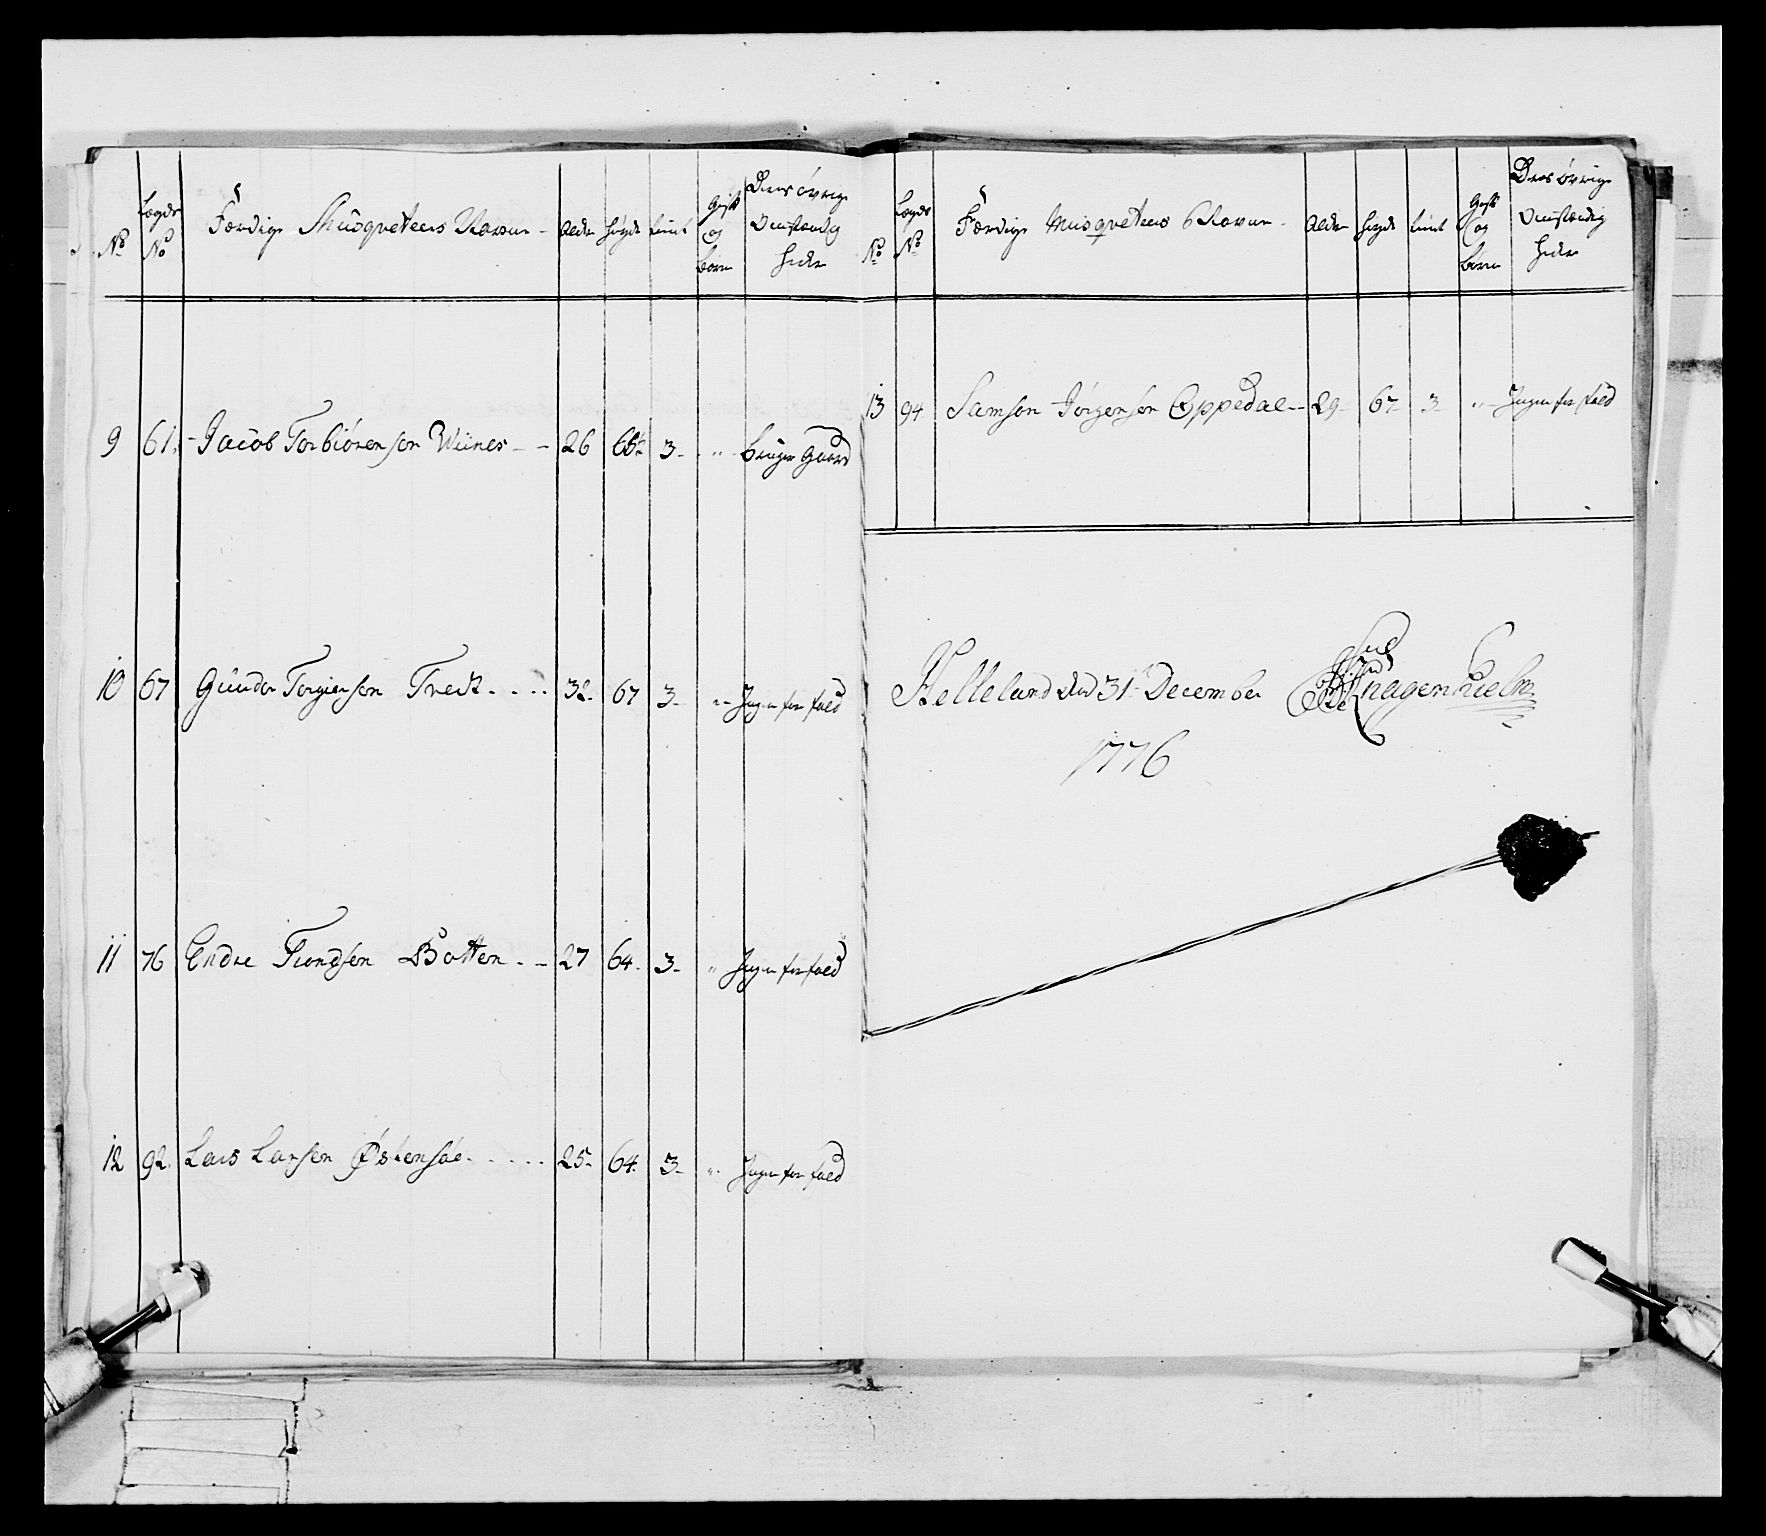 No Lægds No Færdige Musqveteers Navne Alder Høyde timt Gift og børn Deres øvrige Omstændigheder
9 61. Jacob Torbiörensen Wiines 26 65 3 " bruger Gaard
10 67 Gunder Torgiersen Tvedt 32 67 3 " Ingen forfald
11 76 Endre Siondsen Botten 27 64 3 " Ingen forfald
12 92. Lars Larsen Østensöe 25 64 3 " Ingen forfald
No Lægds No Færdige Musqveteers Navne Alder Høyde timt Gift og børn Deres øvrige Omstændigheder
13 94 Samson Jörgensen Oppedal 29 67 3 " Ingen forfald
Helleland den 31 December
1776
Knagenhielm